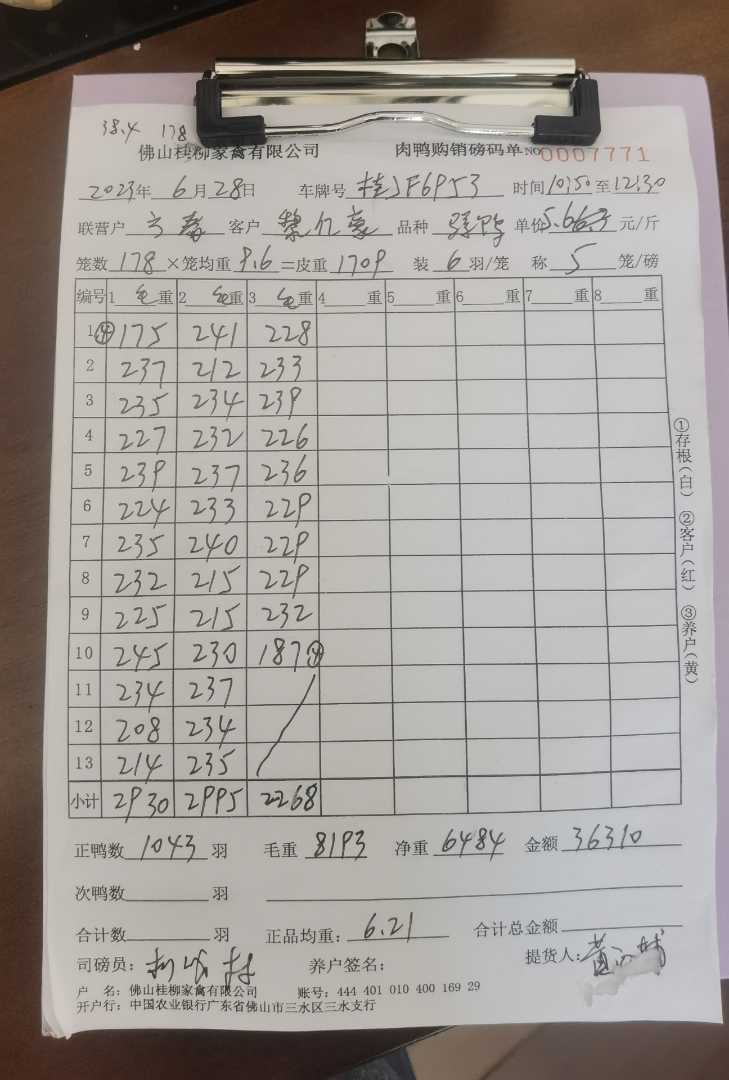 38.4 178
佛山桂柳家禽有限公司 肉鸭购销磅码单 NO 0007771
2023年 6月28日 车牌号 桂JF6953 时间10:50至12:30
联营户 客户 品种 单价 元/斤
笼数 178 ×笼均重 9.6 =皮重 1709 装 6 羽/笼 称 5 笼/磅
编号 1 毛重 2 毛重 3 毛重 4 重 5 重 6 重 7 重 8 重
1 ④175 241 228
2 237 212 233
3 235 234 239
4 227 232 226
5 239 237 236
6 224 233 229
7 235 240 229
8 232 215 229
9 225 215 232
10 245 230 187④
11 234 237
12 208 234
13 214 235
小计 2930 2995 2268
正鸭数 1043 羽 毛重 8193 净重 6484 金额 36310
次鸭数 羽
合计数 羽 正品均重: 6.21 合计总金额
司磅员: 养户签名: 提货人:
户 名: 佛山桂柳家禽有限公司 账号: 444 401 010 400 169 29
开户行: 中国农业银行广东省佛山市三水区三水支行
①存根(白) ②客户(红) ③养户(黄)